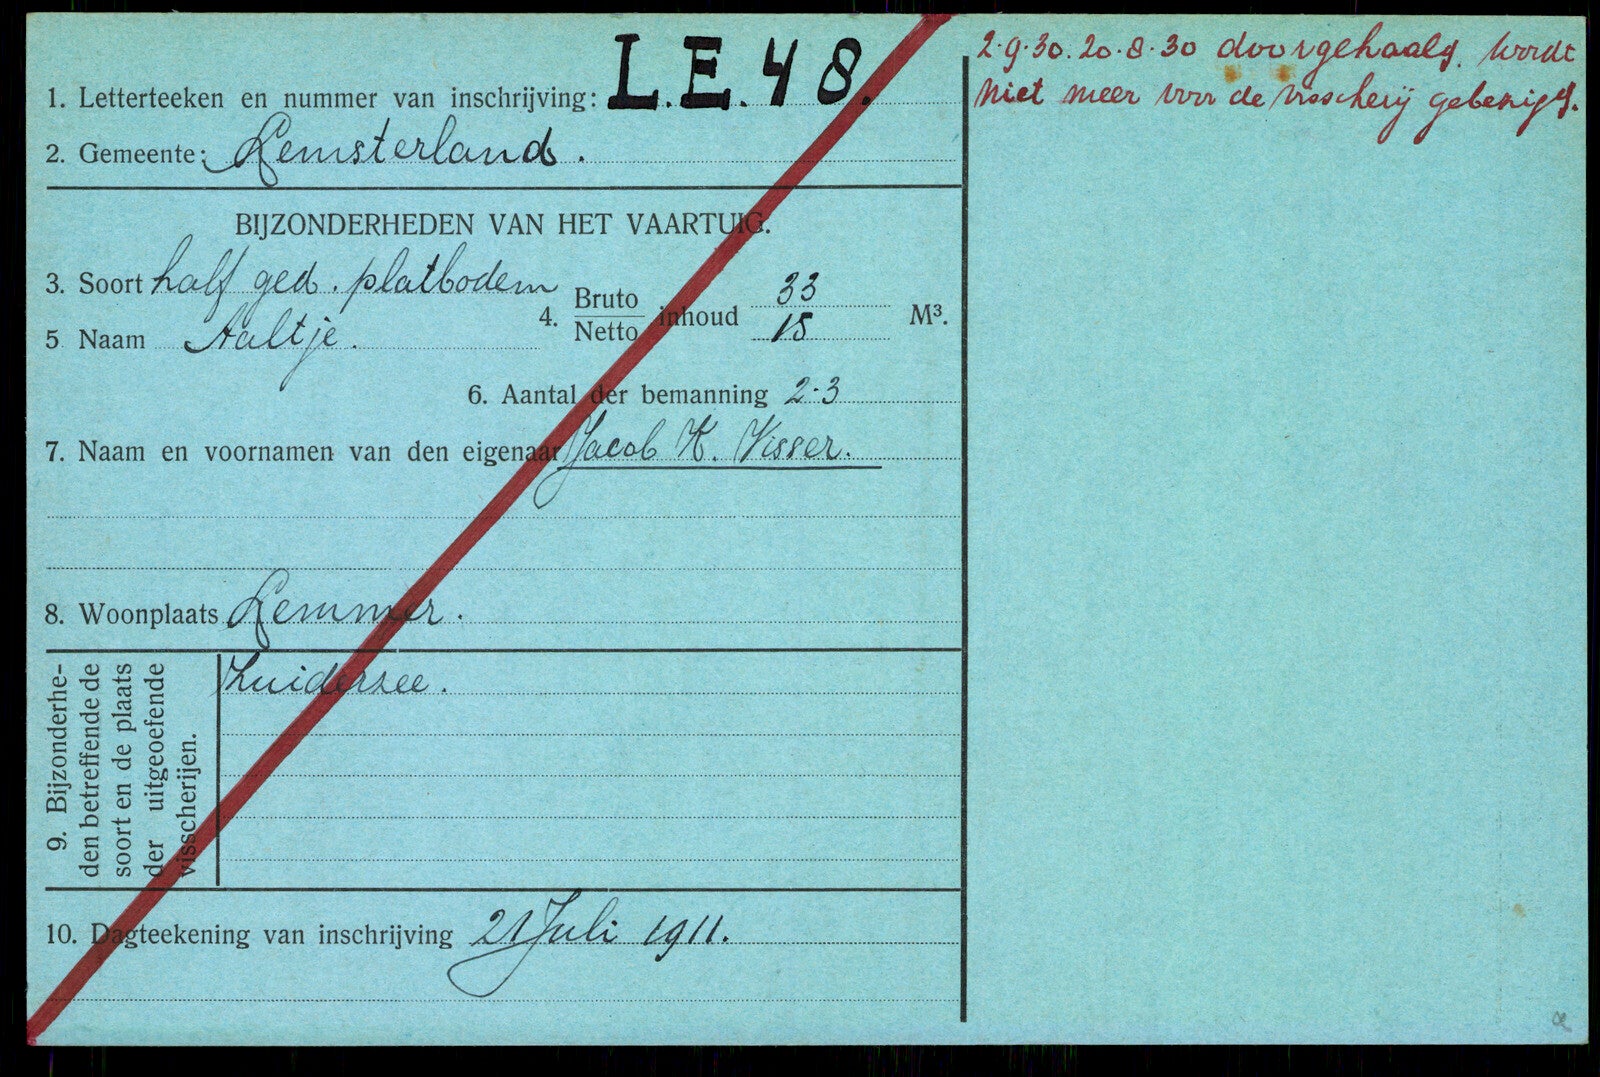 1. Letterteeken en nummer van inschrijving: L.E.48.
2. Gemeente: Lemsterland.
BIJZONDERHEDEN VAN HET VAARTUIG.
3. Soort half ged. platbodem
4. Bruto
Netto inhoud 33
15 M³.
5 Naam Aaltje.
6. Aantal der bemanning 2-3
7. Naam en voornamen van den eigenaar Jacob K. Visser.
8. Woonplaats Lemmer.
9. Bijzonderhe-
den betreffende de
soort en de plaats
der uitgeoefende
visscherijen.
Zuiderzee.
10. Dagteekening van inschrijving 21 Juli 1911.
2.9.30. 20.8.30 doorgehaald. wordt
niet meer voor de visscherij gebezigd.